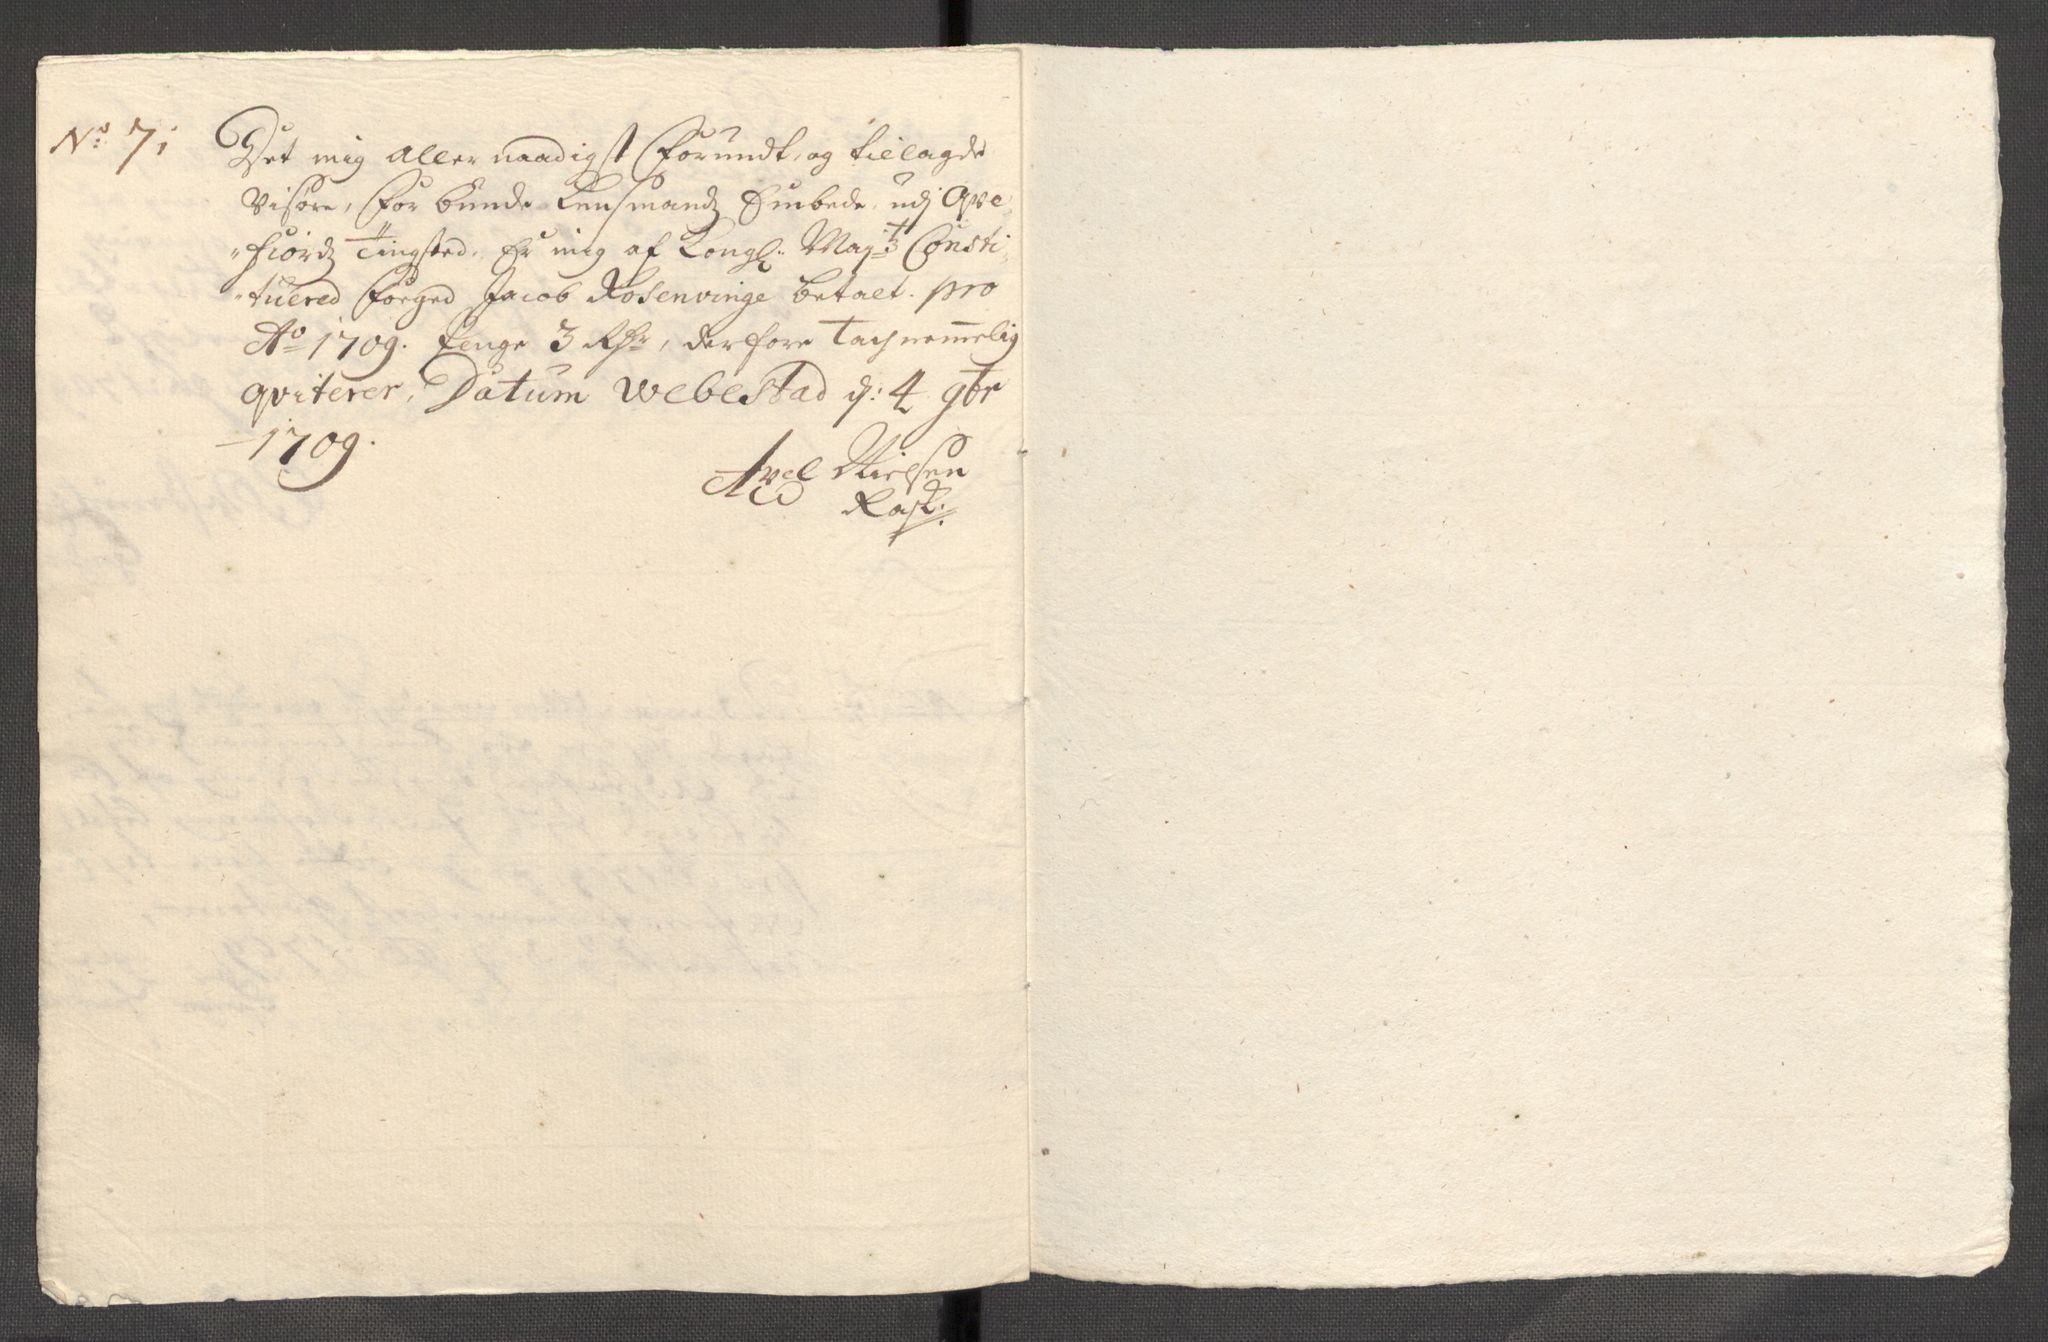 No: 71
Det mig aller naadigst forundt, og tillagde
Visøre, for bunde Lensmandz Embede, udj Qve-
-fiordz Tingsted, Er mig af Kongl: Maytz Consti-
-tuered Foeged Jacob Rosenvinge betalt. pro
Ao 1709. penge 3 Rdr, derfore Tachnemmelig
qviterer, Datum Webestad d: 4 9br
1709.
Axel Nielsen
Rask.